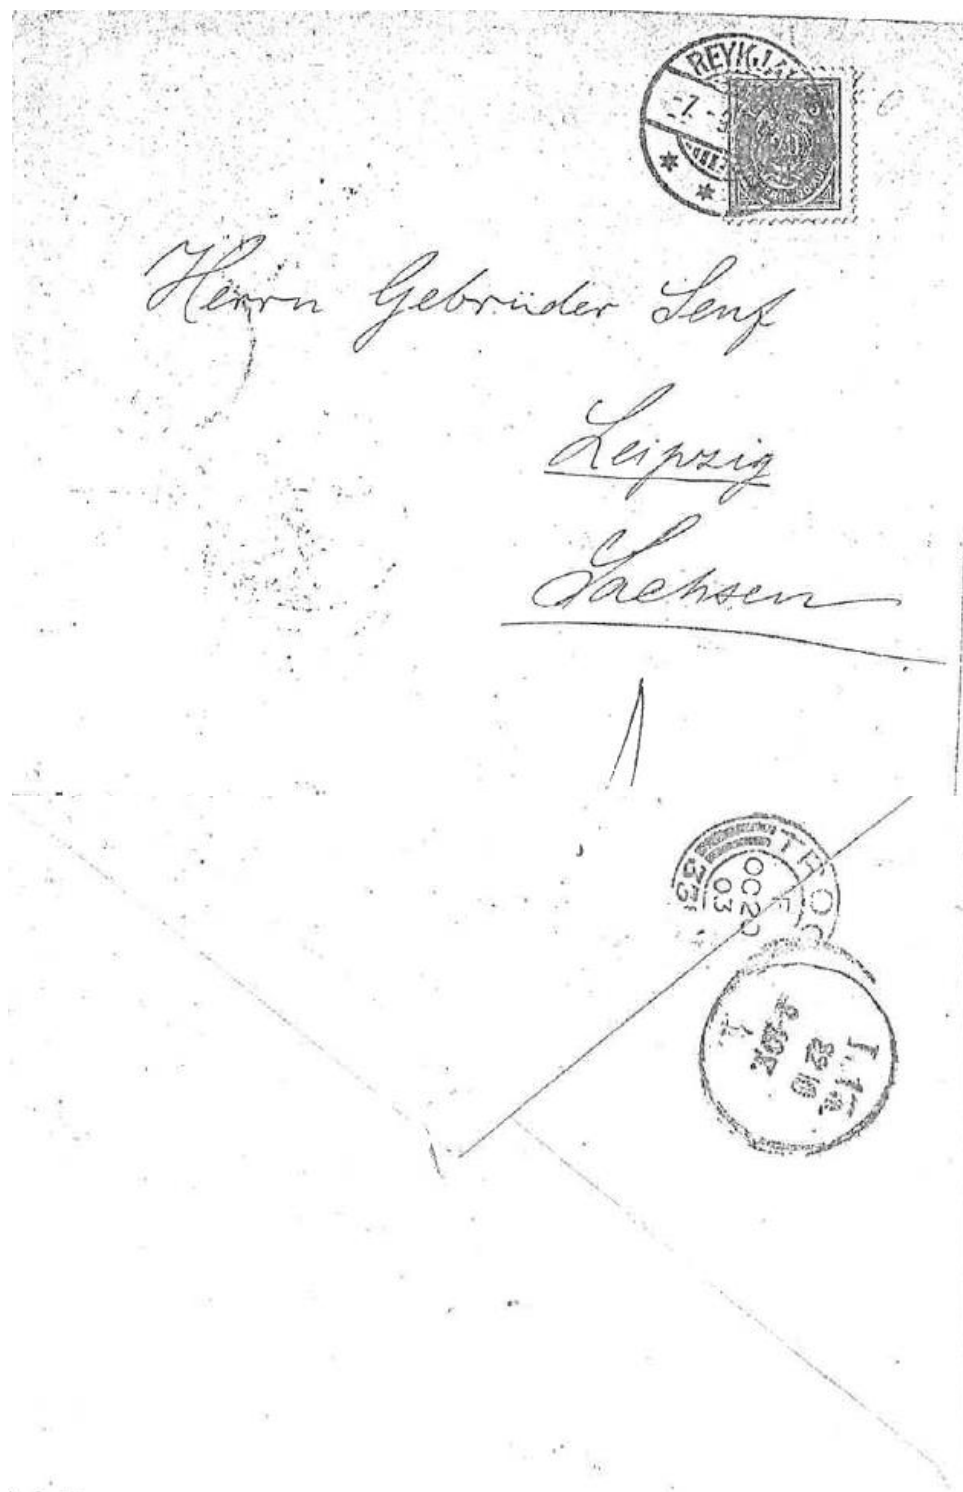 REYKJAV
-7.
Herrn Gebrüder Senf
Leipzig
Sachsen
TROO
F
OC 20
03
331
L. 13
22 10